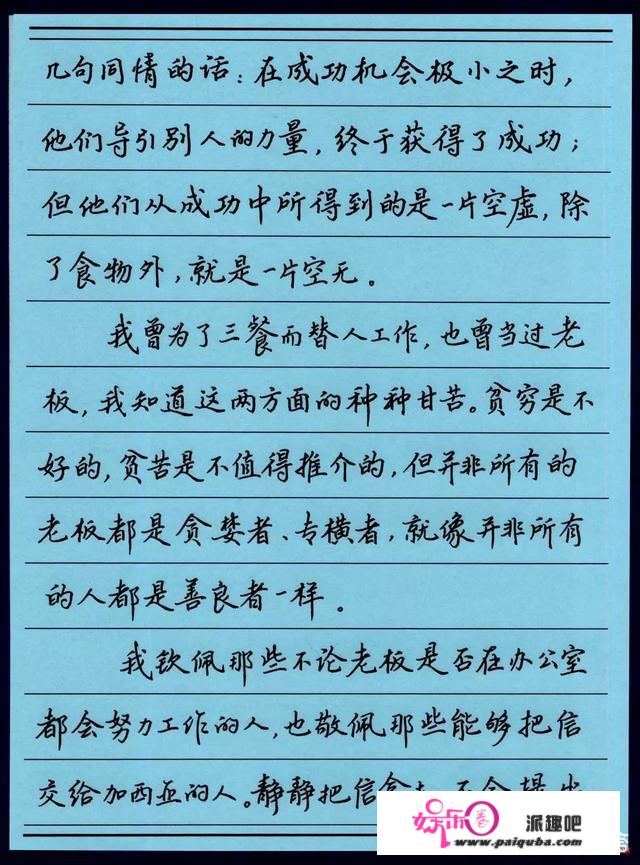 几句同情的话：在成功机会极小之时，
他们导引别人的力量，终于获得了成功；
但他们从成功中所得到的是一片空虚，除
了食物外，就是一片空无。
我曾为了三餐而替人工作，也曾当过老
板，我知道这两方面的种种甘苦。贫穷是不
好的，贫苦是不值得推介的，但并非所有的
老板都是贪婪者、专横者，就像并非所有
的人都是善良者一样。
我钦佩那些不论老板是否在办公室
都会努力工作的人，也敬佩那些能够把信
交给加西亚的人。静静把信
娱乐圈 派趣吧
www.paiquba.com